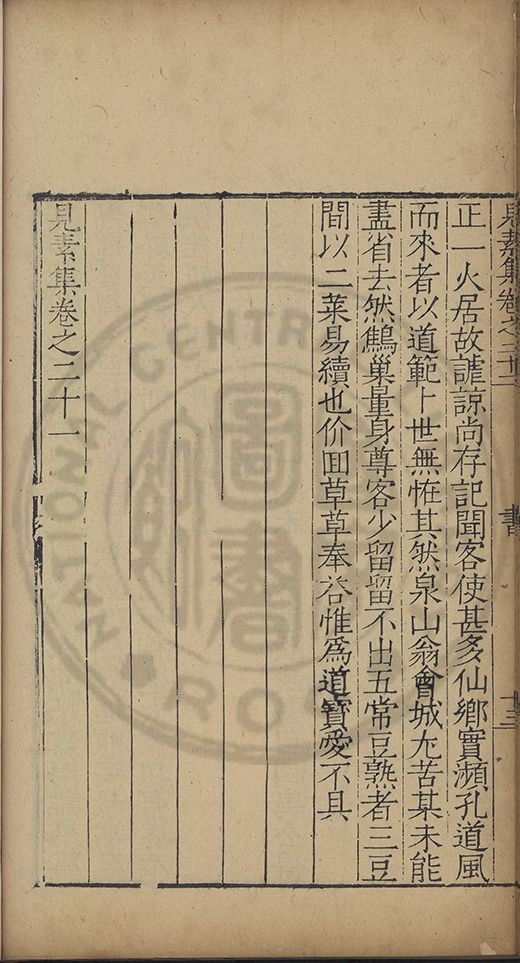 見素集卷之二十一 書 十三
正一火居故謔諒尚存記聞客使甚多仙鄉實瀕孔道風
而來者以道範卜世無恠其然泉山翁會城尤苦某未能
盡省去然鷦巢量身尊客少留留不出五常豆熟者三豆
間以二菜易續也价回草草奉答惟為道寶愛不具
見素集卷之二十一